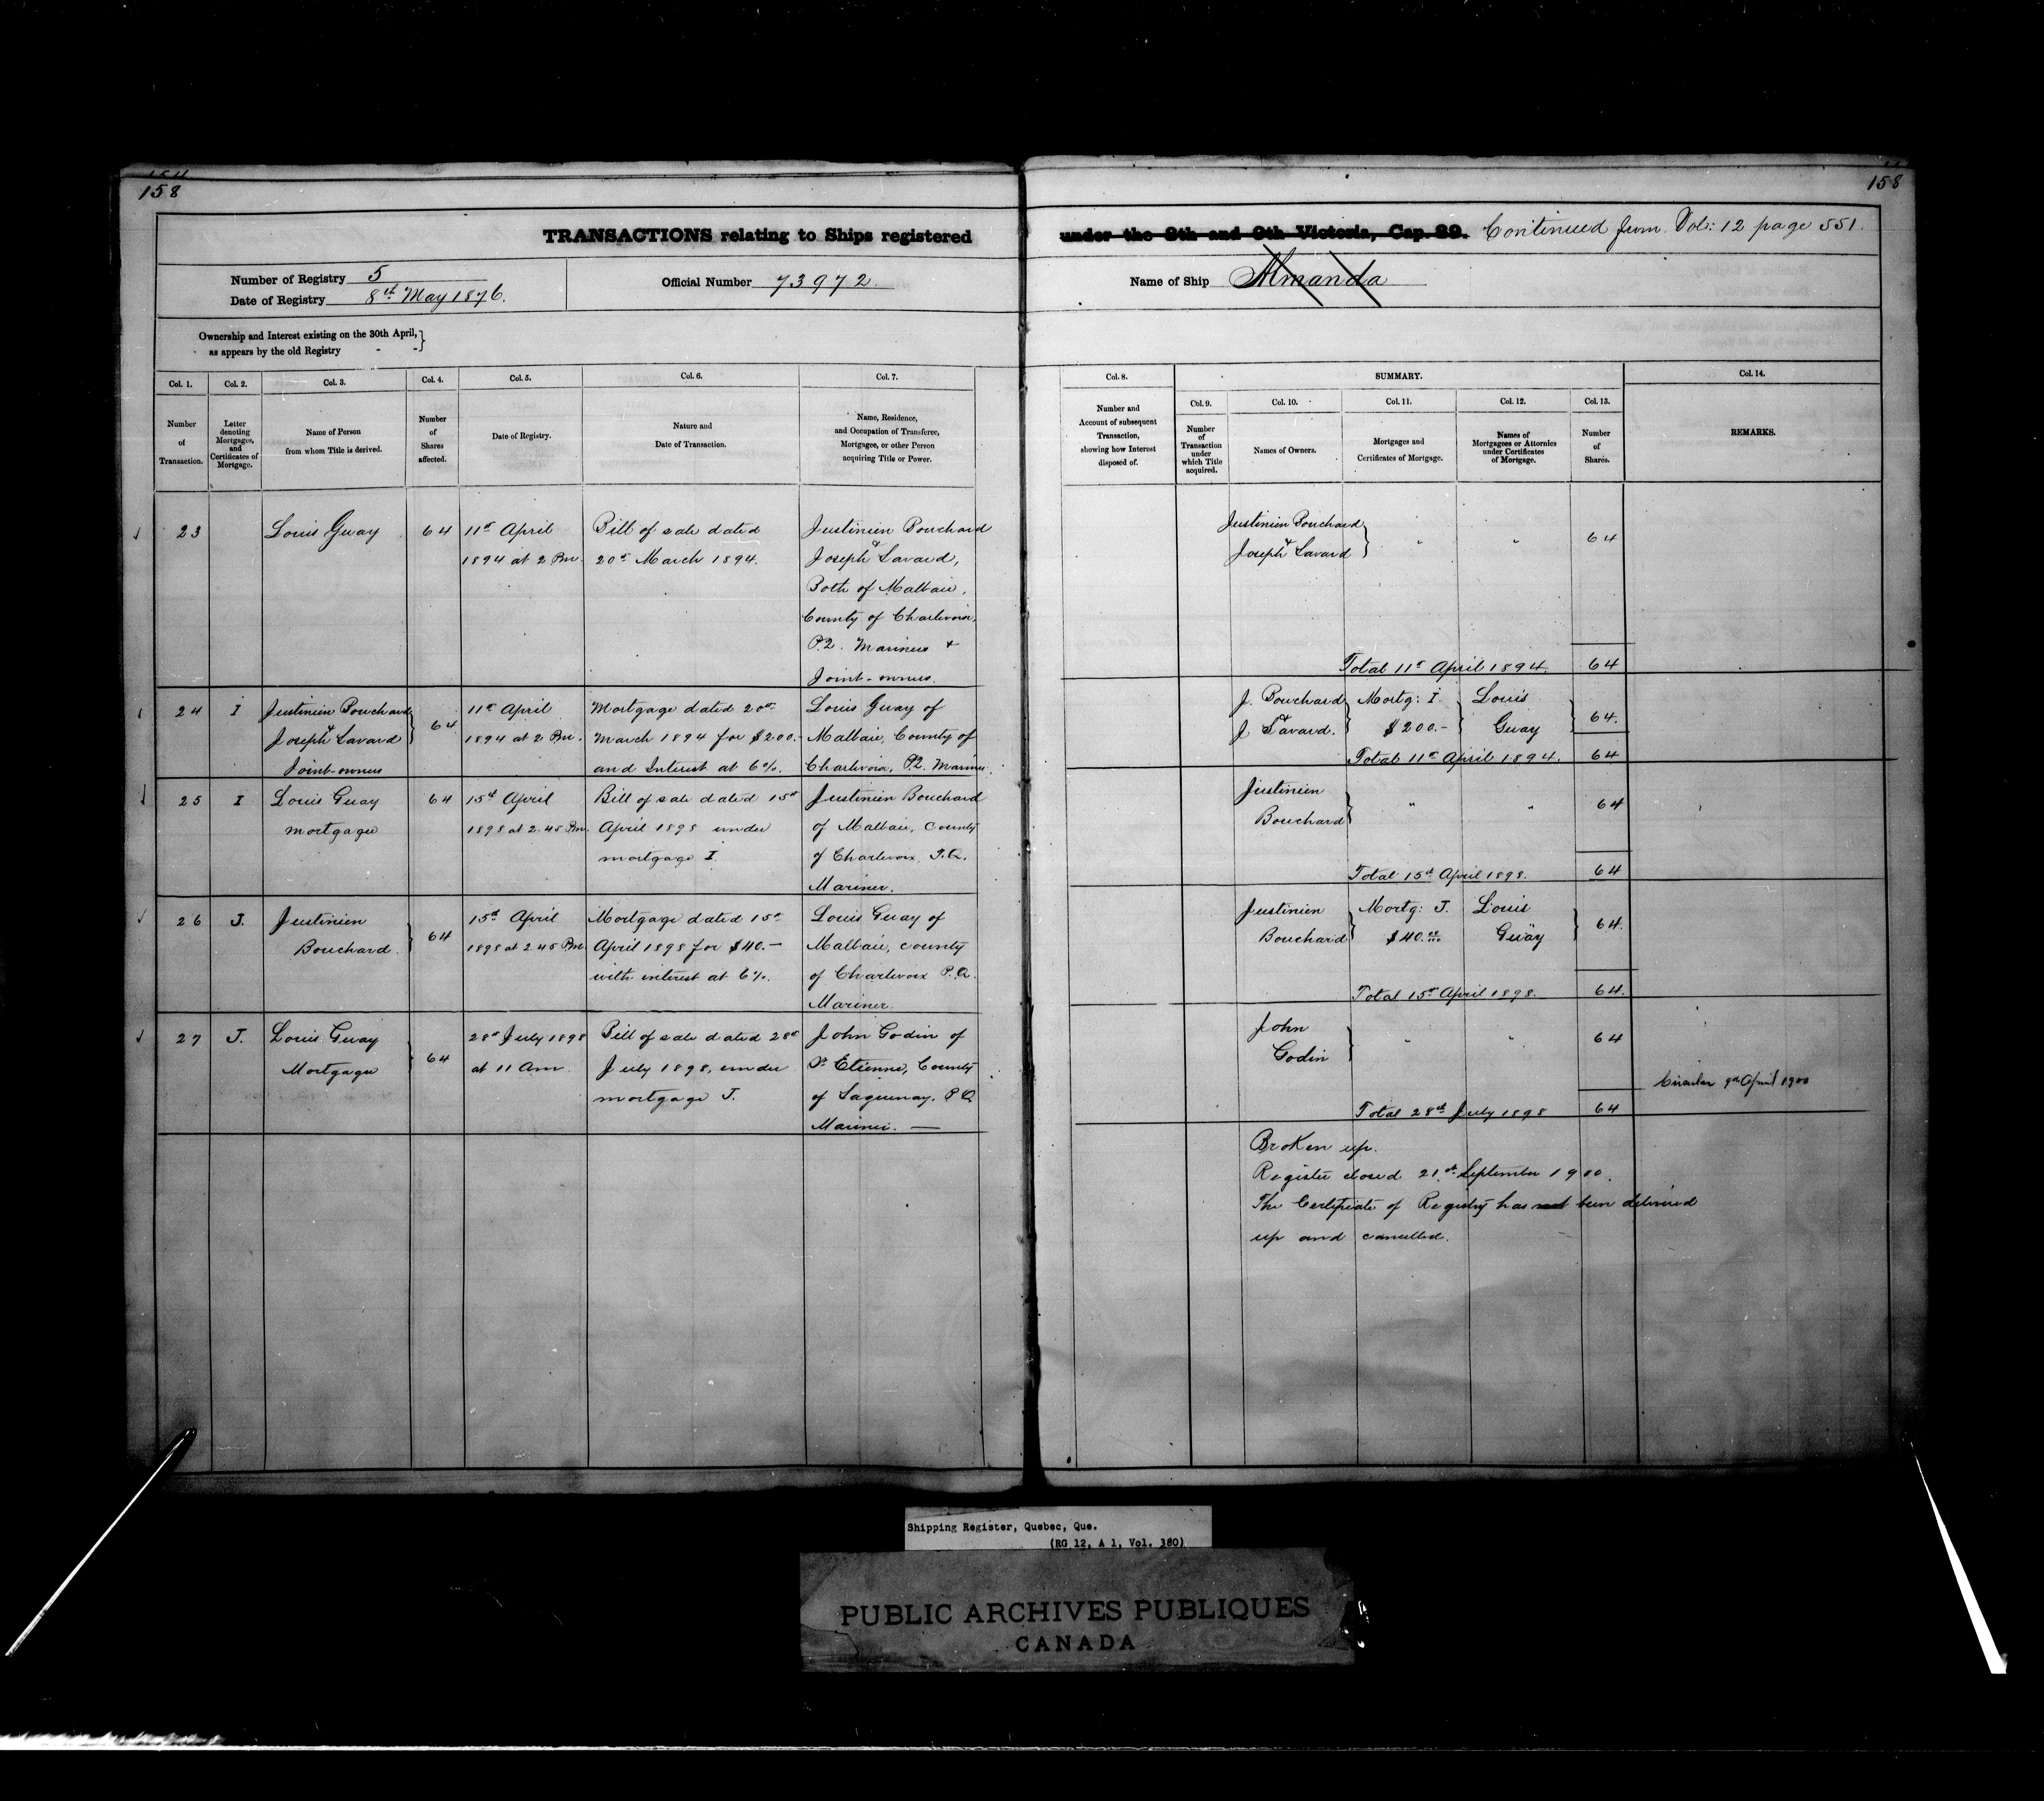 158
158
TRANSACTIONS relating to Ships registered under the 8th and 9th Victoria, Cap. 89. Continued from Vol: 12 page 551.
Number of Registry 5
Date of Registry 8th May 1876.
Official Number 73972
Name of Ship Almanda
Ownership and Interest existing on the 30th April,
as appears by the old Registry - -
Col. 1.
Number
of
Transaction.
Col. 2.
Letter
denoting
Mortgages,
and
Certificates of
Mortgage.
Col. 3.
Name of Person
from whom Title is derived.
Col. 4.
Number
of
Shares
affected.
Col. 5.
Date of Registry.
Col. 6.
Nature and
Date of Transaction.
Col. 7.
Name, Residence,
and Occupation of Transferee,
Mortgagee, or other Person
acquiring Title or Power.
Col. 8.
Number and
Account of subsequent
Transaction,
showing how Interest
disposed of.
SUMMARY.
Col. 9.
Number
of
Transaction
under
which Title
acquired.
Col. 10.
Names of Owners.
Col. 11.
Mortgages and
Certificates of Mortgage.
Col. 12.
Names of
Mortgagees or Attornies
under Certificates
of Mortgage.
Col. 13.
Number
of
Shares.
Col. 14.
REMARKS.
23
Louis Guay
64
11th April
1894 at 2 Pm.
Bill of sale dated
20th March 1894.
Justinien Bouchard
& Joseph Savard,
Both of Malbaie,
County of Charlevoix,
P.Q. Mariners &
Joint-owners.
Justinien Bouchard
& Joseph Savard
" "
64
Total 11th April 1894. 64
24
I
Justinien Bouchard
& Joseph Savard
Joint-owners
64
11th April
1894 at 2 Pm.
Mortgage dated 20th
March 1894 for $200.-
and Interest at 6%.
Louis Guay of
Malbaie, County of
Charlevoix, P.Q. Mariner.
J. Bouchard
& J. Savard.
Mortg: I
$200.-
Louis
Guay
64.
Total 11th April 1894. 64
25
I
Louis Guay
mortgagee
64
15th April
1898 at 2.45 Pm.
Bill of sale dated 15th
April 1898 under
mortgage I.
Justinien Bouchard
of Malbaie, County
of Charlevoix, P.Q.
Mariner.
Justinien
Bouchard
" "
64
Total 15th April 1898. 64
26
J.
Justinien
Bouchard.
64
15th April
1898 at 2.45 Pm
Mortgage dated 15th
April 1898 for $40.-
with interest at 6%.
Louis Guay of
Malbaie, county
of Charlevoix P.Q.
Mariner.
Justinien
Bouchard
Mortg: J.
$40.00/100
Louis
Guay
64.
Total 15th April 1898. 64.
27
J.
Louis Guay
Mortgagee
64
28th July 1898
at 11 Am.
Bill of sale dated 28th
July 1898, under
mortgage J.
John Godin of
St Etienne, County
of Saguenay. P.Q.
Mariner. —
John
Godin
" "
64
Circular 9th April 1900
Total 28th July 1898 64
Broken up.
Register closed 21st September 1900.
The Certificate of Registry has not been delivered
up and cancelled.
Shipping Register, Quebec, Que.
(RG 12, A 1, Vol. 380)
PUBLIC ARCHIVES PUBLIQUES
CANADA